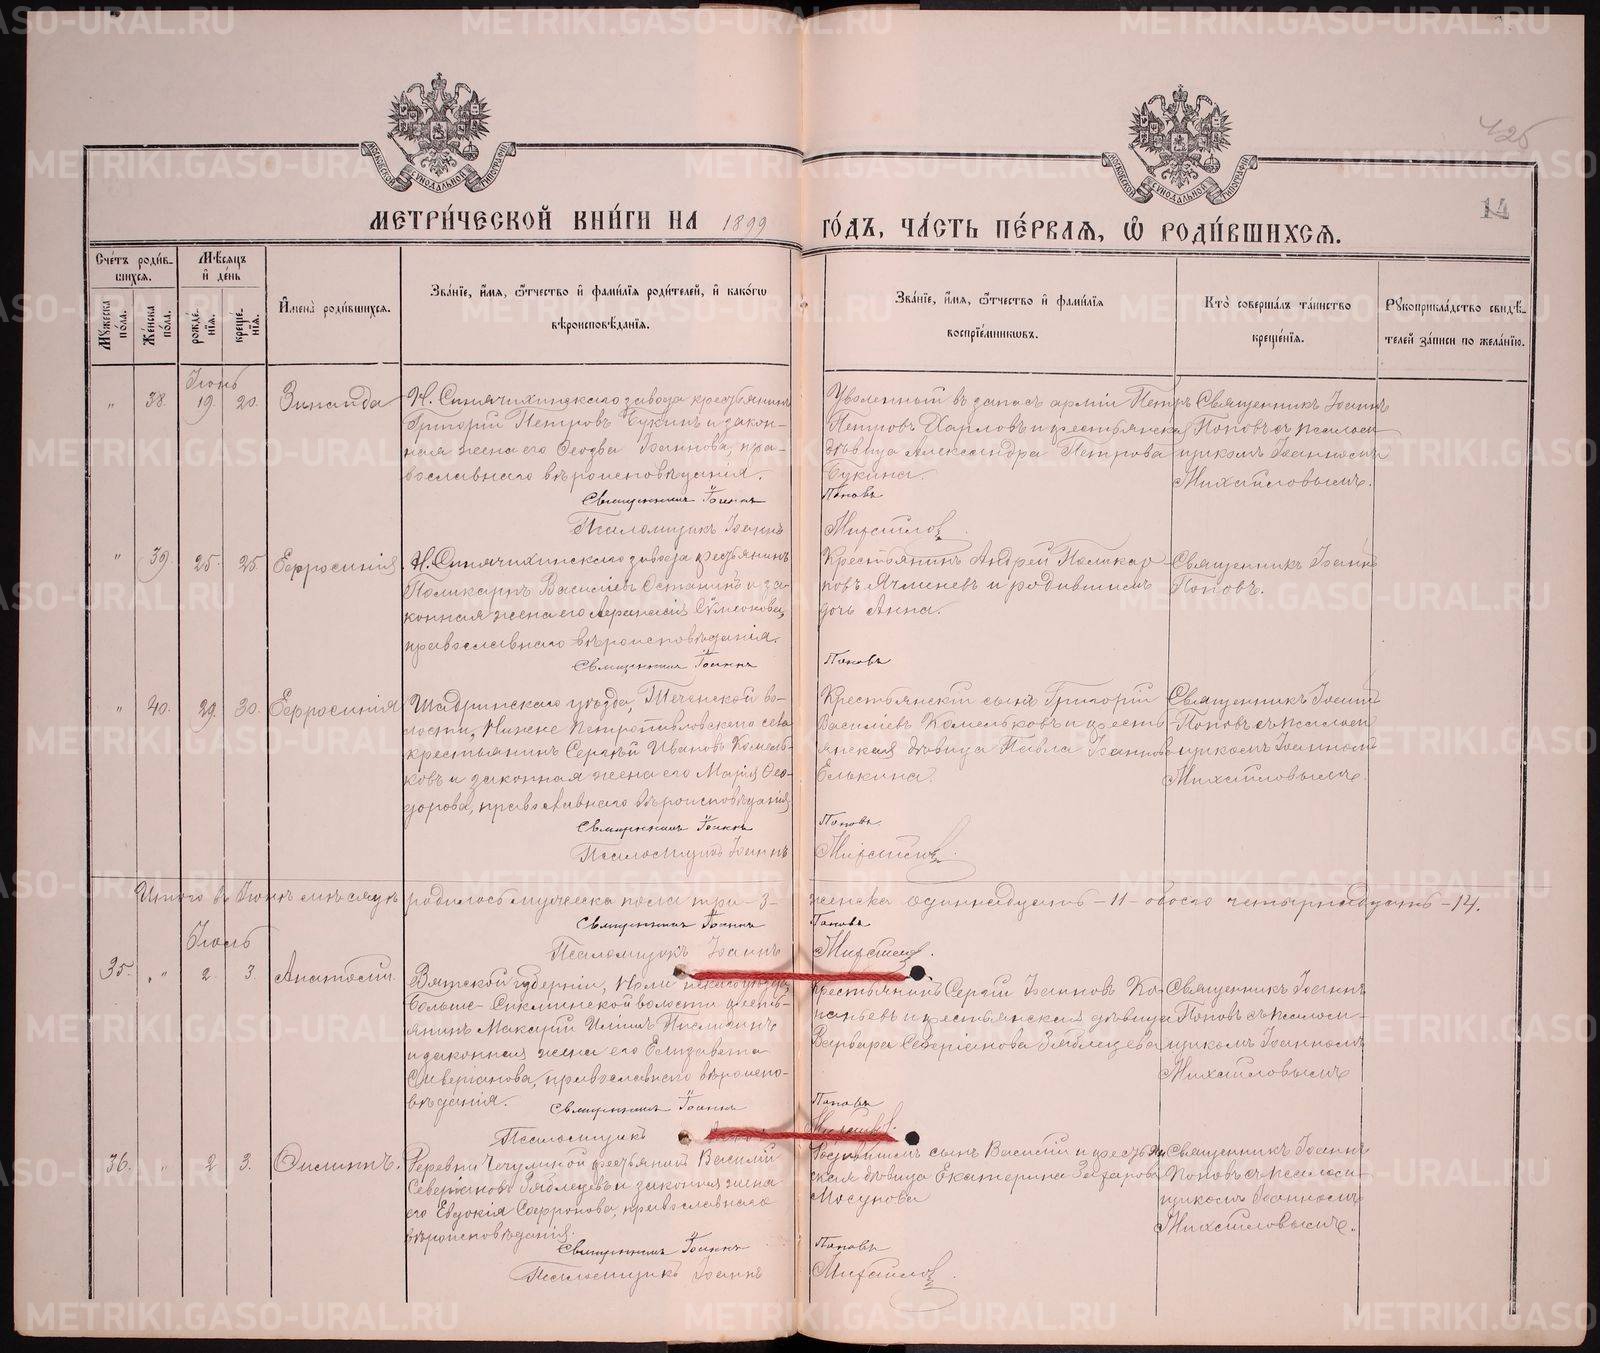 МЕТРИ́ЧЕСКОЙ КНИ́ГИ НА 1899 ГО́ДЪ, ЧА́СТЬ ПЕ́РВАЯ, Ѡ РОДИ́ВШИХСЯ.
14
Сче́тъ роди́в-
шихся.
Му́жеска по́ла.
Же́нска по́ла.
Мѣ́сяцъ
и де́нь
рожде́-
нія.
креще́-
нія.
Имена̀ роди́вшихся.
Зва́ніе, и́мя, ѻ́тчество и фами́лія роди́телей, и како́гѡ
вѣроисповѣ́данія.
Зва́ніе, и́мя, ѻ́тчество и фами́лія
воспріе́мникѡвъ.
Кто̀ соверша́лъ та́инство
креще́нія.
Рукоприкла́дство свидѣ́-
телей за́писи по жела́нію.
Іюнь
" 38. 19. 20. Зинаида
Н. Синячихинскаго завода крестьянинъ
Григорій Петровъ Букинъ и закон-
ная жена его Ѳеодора Іоаннова, пра-
вославнаго вѣроисповѣданія.
Священникъ Іоаннъ Поповъ
Псаломщикъ Іоаннъ Михайлов
Уволенный въ запасъ арміи Петръ
Петровъ Харловъ и крестьянская
дѣвица Александра Петрова
Букина.
Священникъ Іоаннъ
Поповъ съ псалом-
щикомъ Іоанномъ
Михайловымъ.
" 39. 25. 25. Евфросинія
Н. Синячихинскаго завода крестьянинъ
Поликарпъ Василіевъ Останинъ и за-
конная жена его Афанасія Сѵмеонова,
православнаго вѣроисповѣданія.
Священникъ Іоаннъ Поповъ
Крестьянинъ Андрей Поликар-
повъ Ячменевъ и родившихъ
дочь Анна.
Священникъ Іоаннъ
Поповъ.
" 40. 29. 30. Евфросинія
Шадринскаго уѣзда, Теченской во-
лости, Нижне Петропавловскаго села
крестьянинъ Сергѣй Ивановъ Комель-
ковъ и законная жена его Марія Ѳео-
дорова, православнаго вѣроисповѣданія
Священникъ Іоаннъ Поповъ.
Псаломщикъ Іоаннъ Михайлов
Крестьянскій сынъ Григорій
Василіевъ Комельковъ и кресть-
янская дѣвица Павла Іоаннова
Елькина.
Священникъ Іоаннъ
Поповъ съ псалом-
щикомъ Іоанномъ
Михайловымъ.
Итого въ Іюнѣ мѣсяцѣ родилось мужеска пола три -3- женска одиннадцать -11- обоего четырнадцать -14.
Священникъ Іоаннъ Поповъ
Псаломщикъ Іоаннъ Михайлов.
Іюль
35. " 2. 3. Анатолій
Вятской губерніи,
волости кресть-
янинъ Макарій
и законная жена его Елизавета
Северіанова, православнаго вѣроиспо-
вѣданія.
Священникъ Іоаннъ Поповъ
Псаломщикъ
Крестьянинъ Сергій Іоанновъ Ко-
и крестьянская дѣвица
Варвара Северіанова Зяблецева
Священникъ Іоаннъ
Поповъ съ псалом-
щикомъ Іоанномъ
Михайловымъ
36. " 2. 3.
Деревни крестьянинъ Василій
Северіановъ Зяблецевъ и законная жена
его Евдокія Сафронова, православнаго
вѣроисповѣданія.
Священникъ Іоаннъ Поповъ
Псаломщикъ Іоаннъ Михайлов.
сынъ Василій и крестьян-
ская дѣвица Екатерина Захарова
Мосунова
Священникъ Іоаннъ
Поповъ съ псалом-
щикомъ Іоанномъ
Михайловымъ.
METRIKI.GASO-URAL.RU